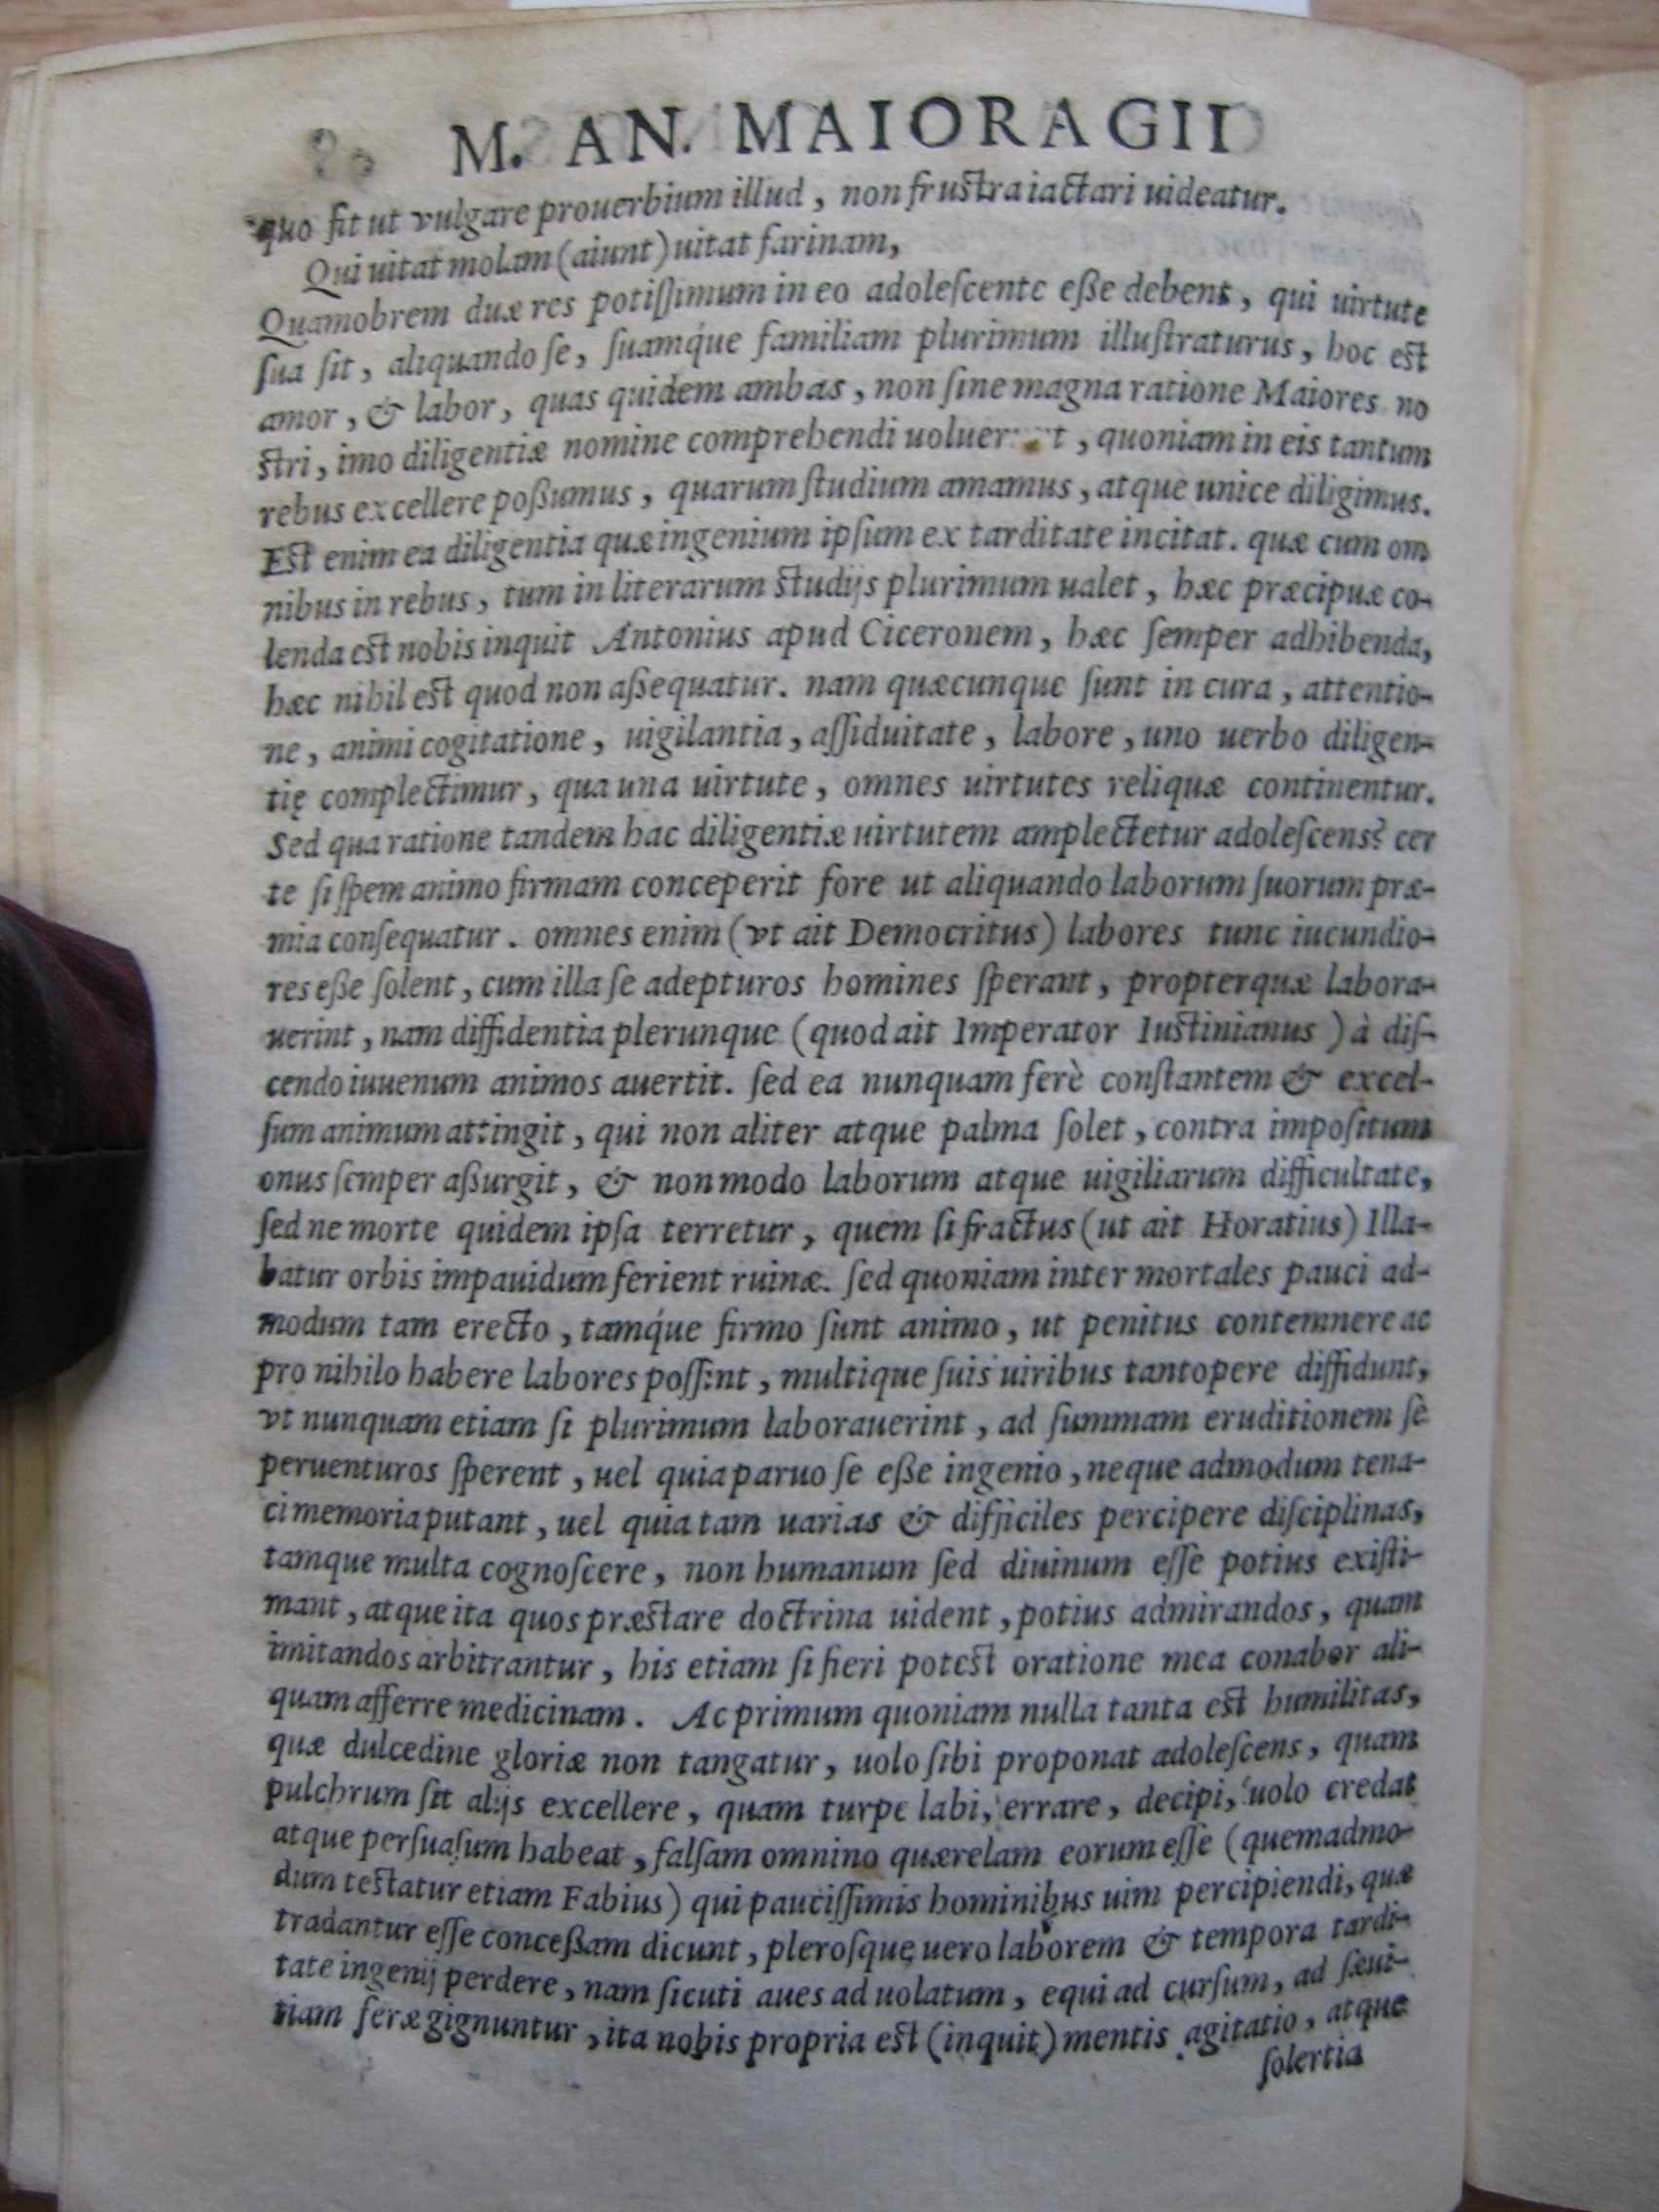 M. AN. MAIORAGII
quo fit ut vulgare prouerbium illud, non frustra iactari uideatur.
Qui uitat molam (aiunt) uitat farinam,
Quamobrem duæ res potiſſimum in eo adoleſcente eße debent, qui uirtute
ſua ſit, aliquando ſe, ſuamq́ue familiam plurimum illuſtraturus, hoc est
amor, & labor, quas quidem ambas, non ſine magna ratione Maiores no
stri, imo diligentiæ nomine comprehendi uoluer t, quoniam in eis tantum
rebus excellere poßumus, quarum ſtudium amamus, atque unice diligimus.
Est enim ea diligentia quæ ingenium ipſum ex tarditate incitat. quæ cum om
nibus in rebus, tum in literarum studijs plurimum ualet, hæc præcipuæ co-
lenda est nobis inquit Antonius apud Ciceronem, hæc ſemper adhibenda,
hæc nihil est quod non aßequatur. nam quæcunque ſunt in cura, attentio-
ne, animi cogitatione, uigilantia, aſſiduitate, labore, uno uerbo diligen-
tię complectimur, qua una uirtute, omnes uirtutes reliquæ continentur.
Sed qua ratione tandem hac diligentiæ uirtutem amplectetur adoleſcens? cer
te ſi ſpem animo firmam conceperit fore ut aliquando laborum ſuorum præ-
mia conſequatur. omnes enim (vt ait Democritus) labores tunc iucundio-
res eße ſolent, cum illa ſe adepturos homines ſperant, propterquæ labora-
uerint, nam diffidentia plerunque (quod ait Imperator Iustinianus) à diſ-
cendo iuuenum animos auertit. ſed ea nunquam ferè conſtantem & excel-
ſum animum attingit, qui non aliter atque palma ſolet, contra impoſitum
onus ſemper aßurgit, & non modo laborum atque uigiliarum difficultate,
ſed ne morte quidem ipſa terretur, quem ſi fractus (ut ait Horatius) Illa-
batur orbis impauidum ferient ruinæ. ſed quoniam inter mortales pauci ad-
modum tam erecto, tamq́ue firmo ſunt animo, ut penitus contemnere ac
pro nihilo habere labores poſſint, multique ſuis uiribus tantopere diffidunt,
vt nunquam etiam ſi plurimum laborauerint, ad ſummam eruditionem ſe
peruenturos ſperent, uel quia paruo ſe eße ingenio, neque admodum tena-
ci memoria putant, uel quia tam uarias & difficiles percipere diſciplinas,
tamque multa cognoſcere, non humanum ſed diuinum eſſe potius exiſti-
mant, atque ita quos præstare doctrina uident, potius admirandos, quam
imitandos arbitrantur, his etiam ſi fieri potest oratione mea conabor ali-
quam afferre medicinam. Ac primum quoniam nulla tanta est humilitas,
quæ dulcedine gloriæ non tangatur, uolo ſibi proponat adoleſcens, quam
pulchrum ſit alijs excellere, quam turpe labi, errare, decipi, uolo credat
atque perſuaſum habeat, falſam omnino quærelam eorum eſſe (quemadmo-
dum testatur etiam Fabius) qui pauciſſimis hominibus uim percipiendi, quæ
tradantur eſſe conceßam dicunt, pleroſque uero laborem & tempora tardi-
tate ingenij perdere, nam ſicuti aues ad uolatum, equi ad curſum, ad ſæui-
tiam feræ gignuntur, ita nobis propria est (inquit) mentis agitatio, atque
ſolertia